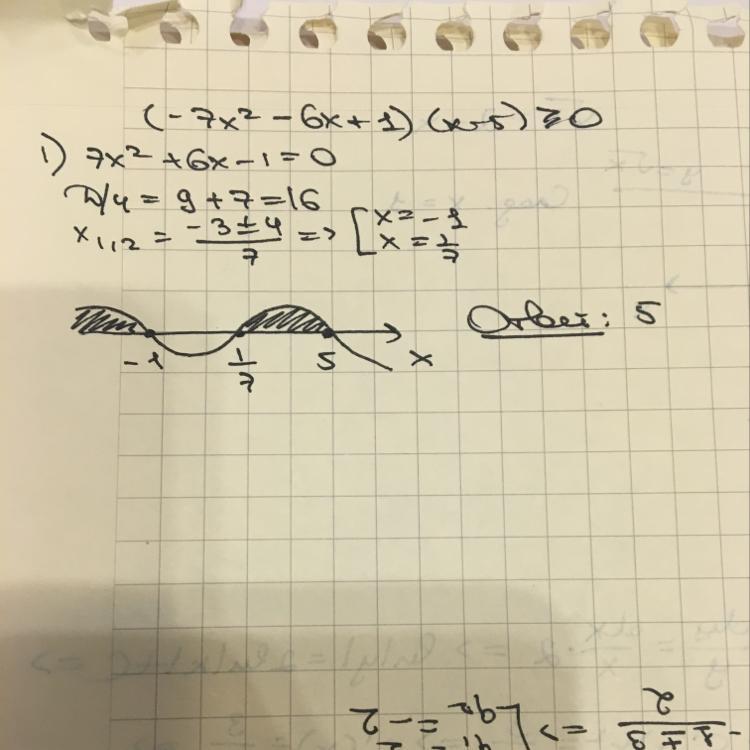 (-7x² - 6x + 1) (x-5) ≥ 0
1) 7x² + 6x - 1 = 0
D/4 = 9 + 7 = 16
x₁,₂ = (-3 ± 4)/7 => [x = -1
x = 1/7
-1 1/7 5 x
Ответ: 5